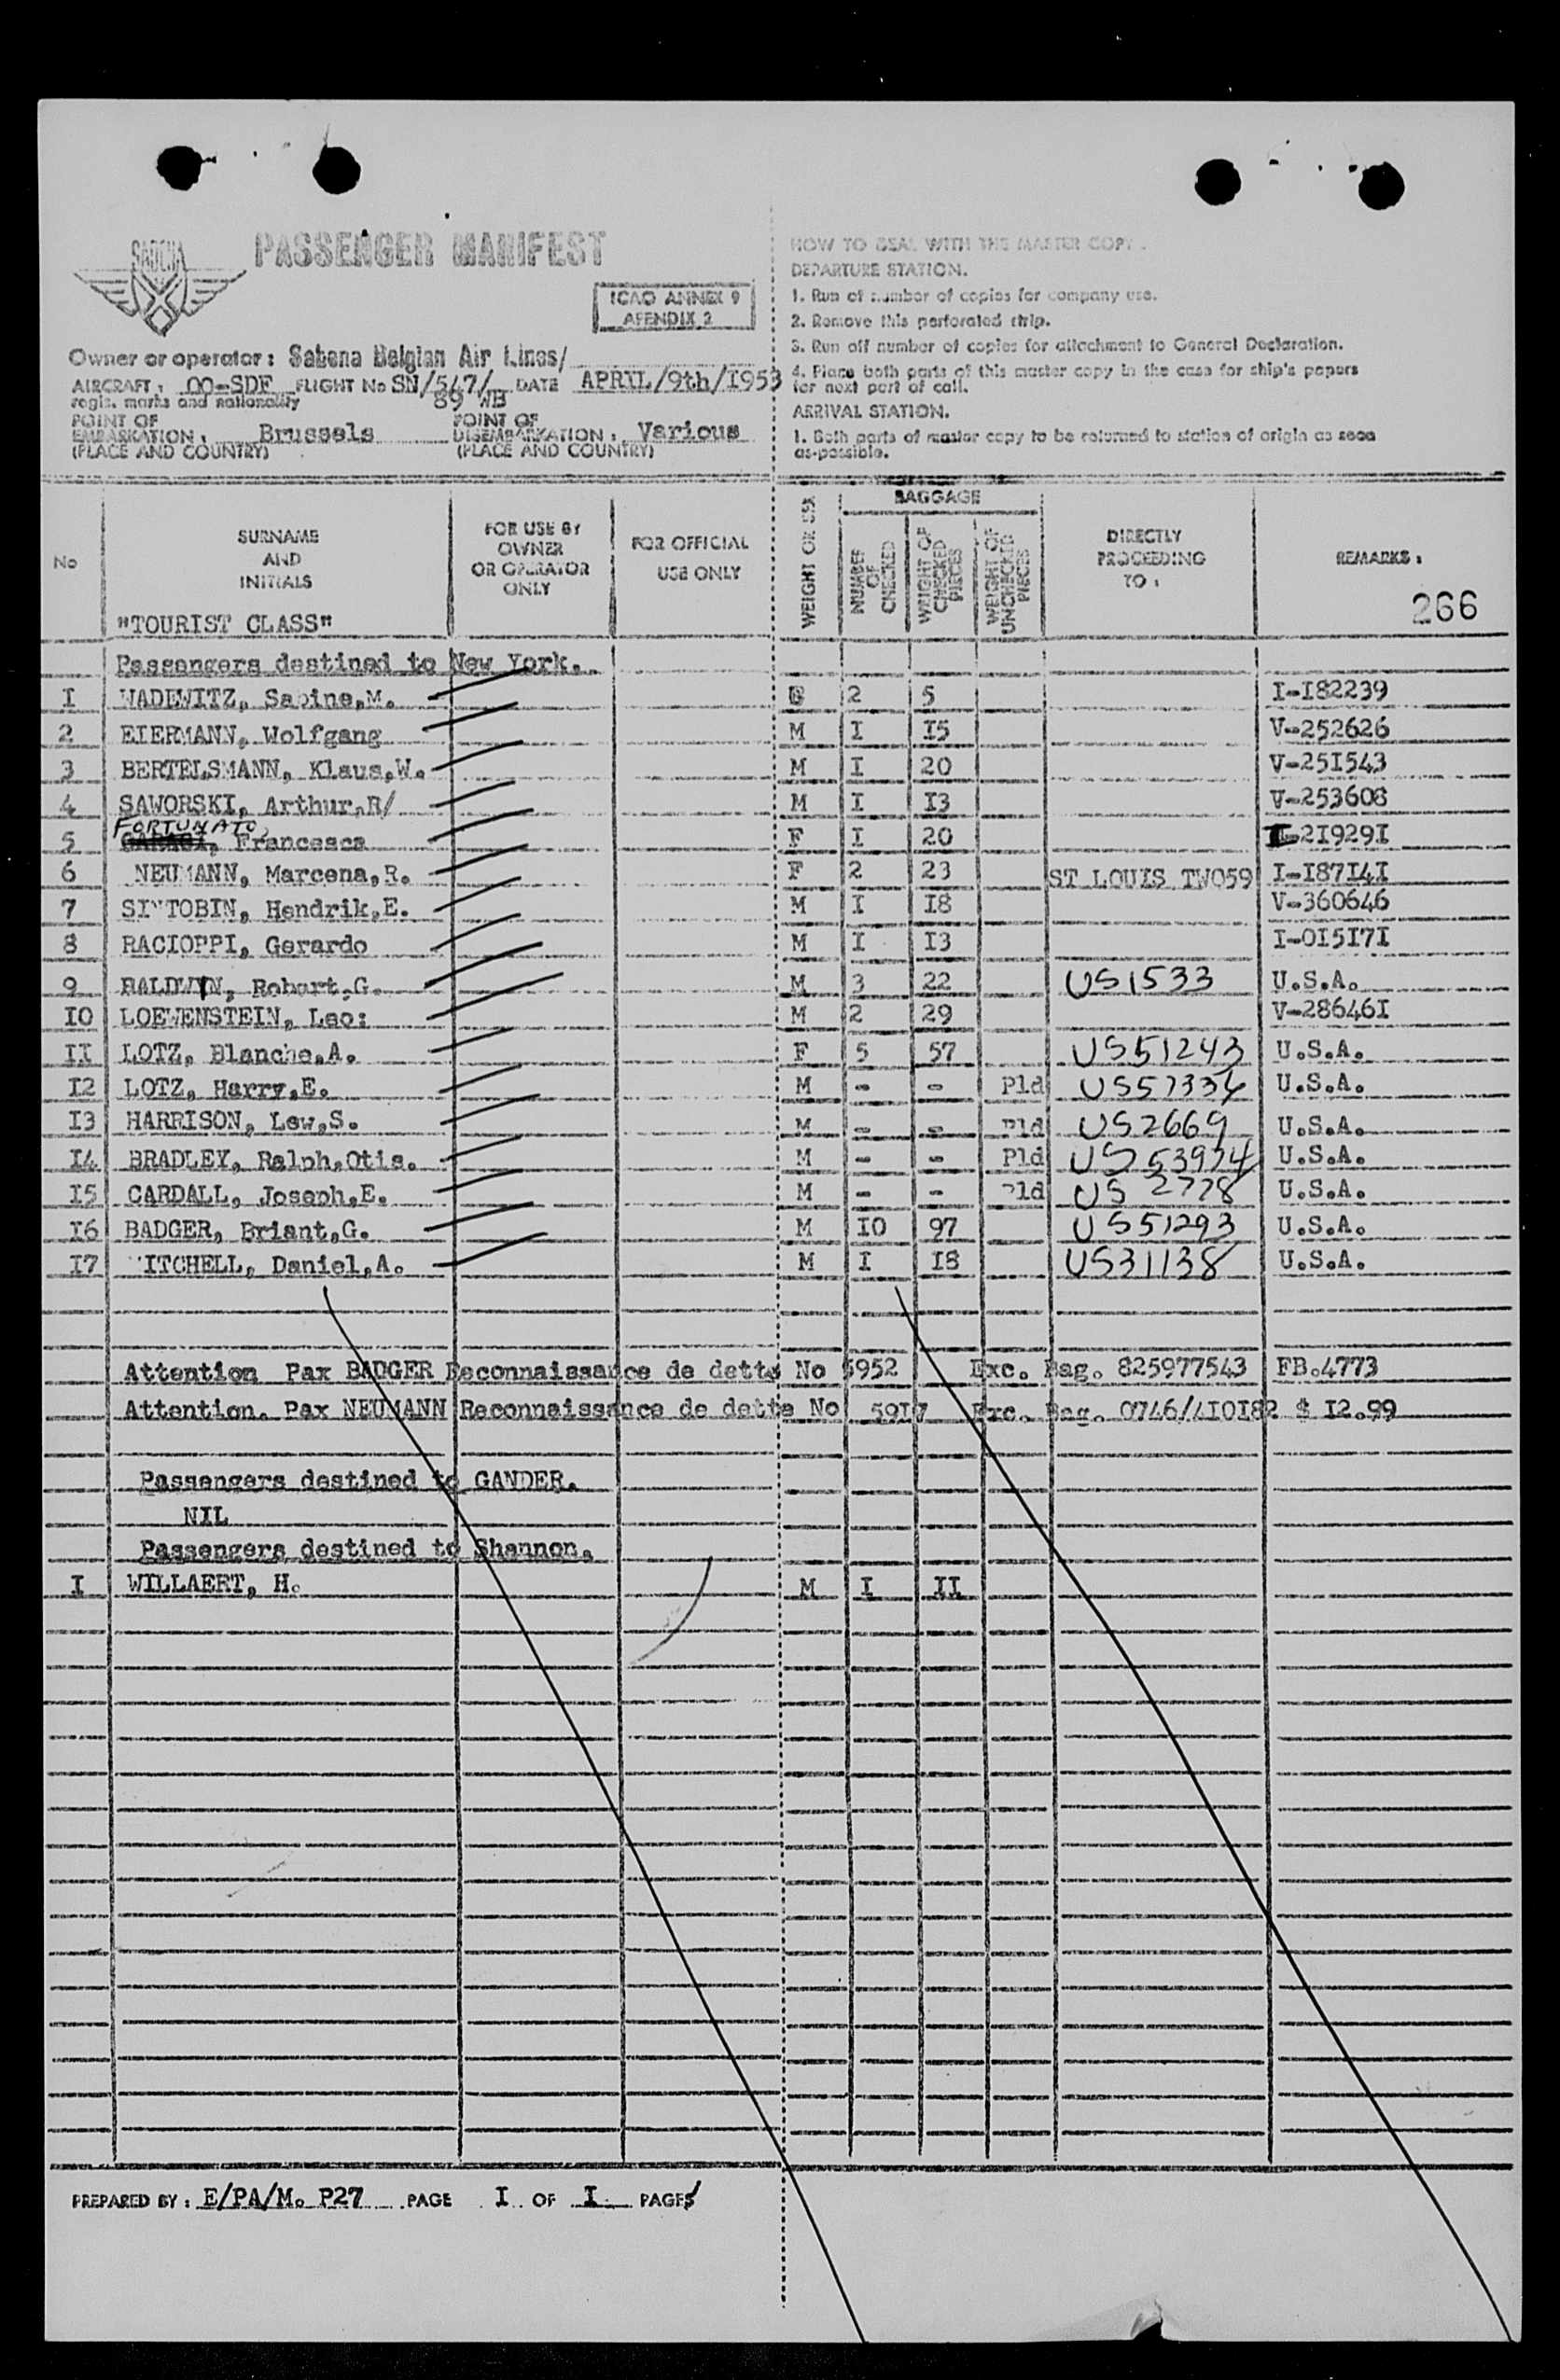 SABENA
PASSENGER MANIFEST
ICAO ANNEX 9
APENDIX 2
Owner or operator: Sabena Belgian Air Lines/
AIRCRAFT: OO-SDF FLIGHT No SN/547/ DATE APRIL/9th/I953
regis. marks and nationality 89 WB
POINT OF EMBARKATION: Brussels POINT OF DISEMBARKATION: Various
(PLACE AND COUNTRY) (PLACE AND COUNTRY)
HOW TO DEAL WITH THE MASTER COPY.
DEPARTURE STATION.
1. Run of number of copies for company use.
2. Remove this perforated strip.
3. Run off number of copies for attachment to General Declaration.
4. Place both parts of this master copy in the case for ship's papers
for next port of call.
ARRIVAL STATION.
1. Both parts of master copy to be returned to station of origin as soon
as possible.
No
SURNAME AND INITIALS
FOR USE BY OWNER OR OPERATOR ONLY
FOR OFFICIAL USE ONLY
WEIGHT OR SEX
BAGGAGE
NUMBER OF CHECKED
WEIGHT OF CHECKED PIECES
WEIGHT OF UNCHECKED PIECES
DIRECTLY PROCEEDING TO:
REMARKS:
266
"TOURIST CLASS"
Passengers destined to New York.
I WADEWITZ, Sabine,M. 2 5 I-I82239
2 EIERMANN, Wolfgang M I I5 V-252626
3 BERTELSMANN, Klaus,W. M I 20 V-25I543
4 SAWORSKI, Arthur,R/ M I I3 V-253608
FORTUNATO,
5 Francesca F I 20 I-2I929I
6 NEUMANN, Marcena,R. F 2 23 ST LOUIS TWO59 I-I87I4I
7 SINTOBIN, Hendrik,E. M I I8 V-360646
8 RACIOPPI, Gerardo M I I3 I-OI5I7I
9 BALDWIN, Robert,G. M 3 22 US1533 U.S.A.
IO LOEWENSTEIN, Leo: M 2 29 V-28646I
II LOTZ, Blanche,A. F 5 57 US51243 U.S.A.
I2 LOTZ, Harry,E. M - - Pld US57334 U.S.A.
I3 HARRISON, Lew,S. M - - Pld US2669 U.S.A.
I4 BRADLEY, Ralph,Otis. M - - Pld US53974 U.S.A.
I5 CARDALL, Joseph,E. M - - Pld US 2778 U.S.A.
I6 BADGER, Briant,G. M IO 97 US51293 U.S.A.
I7 MITCHELL, Daniel,A. M I I8 US31138 U.S.A.
Attention Pax BADGER Reconnaissance de dette No 5952 Exc. Bag. 825977543 FB.4773
Attention. Pax NEUMANN Reconnaissance de dette No 59I7 Exc. Bag. 0746/4IOI82 $ I2.99
Passengers destined to GANDER.
NIL
Passengers destined to Shannon.
I WILLAERT, H. M I II
PREPARED BY: E/PA/M. P27 PAGE I OF I PAGES